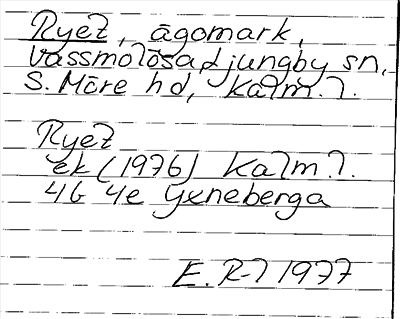 Ryet, ägomark,
Vassmolösa, Ljungby sn,
S. Möre hd, Kalm. l.
Ryet
ek (1976) Kalm. l.
4G 4e Yxneberga
E. R-l 1977